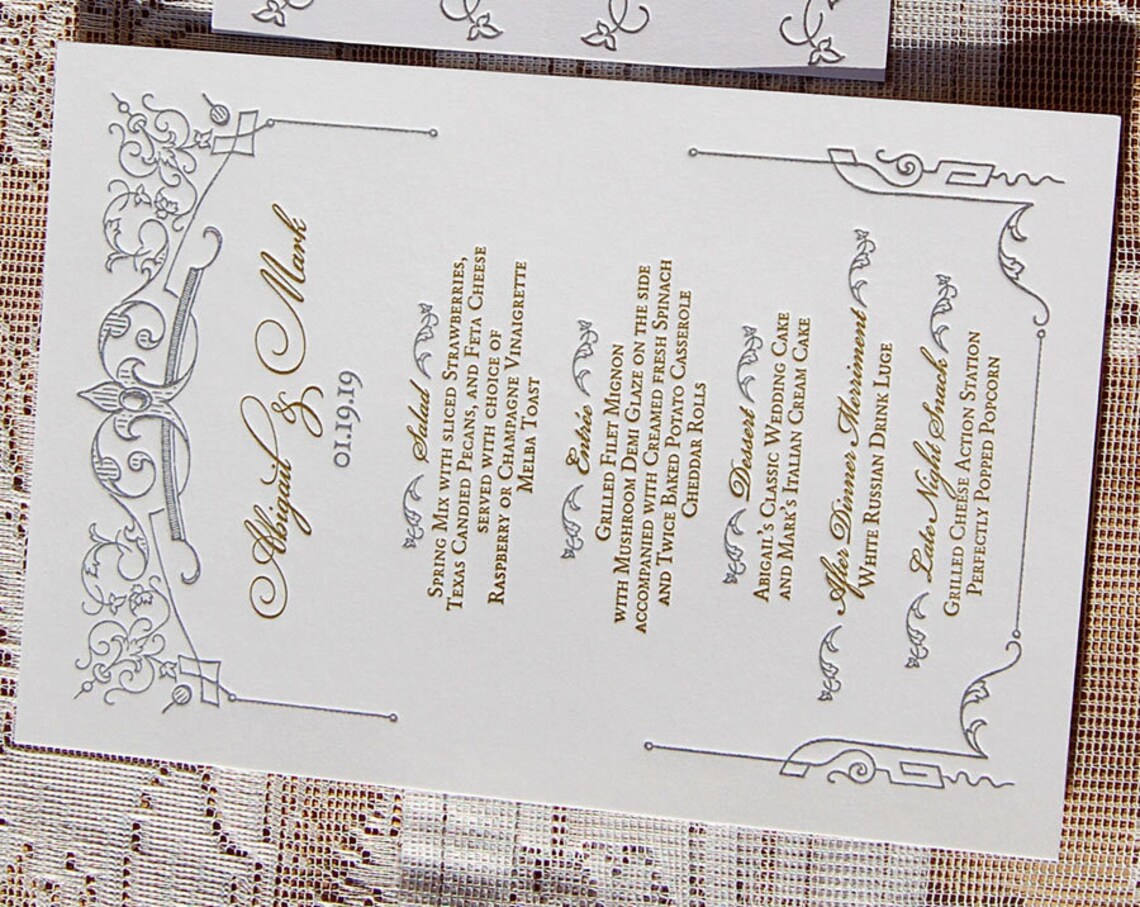 Abigail & Mark
01.19.19
Salad
Spring Mix with sliced Strawberries,
Texas Candied Pecans, and Feta Cheese
served with choice of
Raspberry or Champagne Vinaigrette
Melba Toast
Entrée
Grilled Filet Mignon
with Mushroom Demi Glaze on the side
accompanied with Creamed fresh Spinach
and Twice Baked Potato Casserole
Cheddar Rolls
Dessert
Abigail's Classic Wedding Cake
and Mark's Italian Cream Cake
After Dinner Merriment
White Russian Drink Luge
Late Night Snack
Grilled Cheese Action Station
Perfectly Popped Popcorn